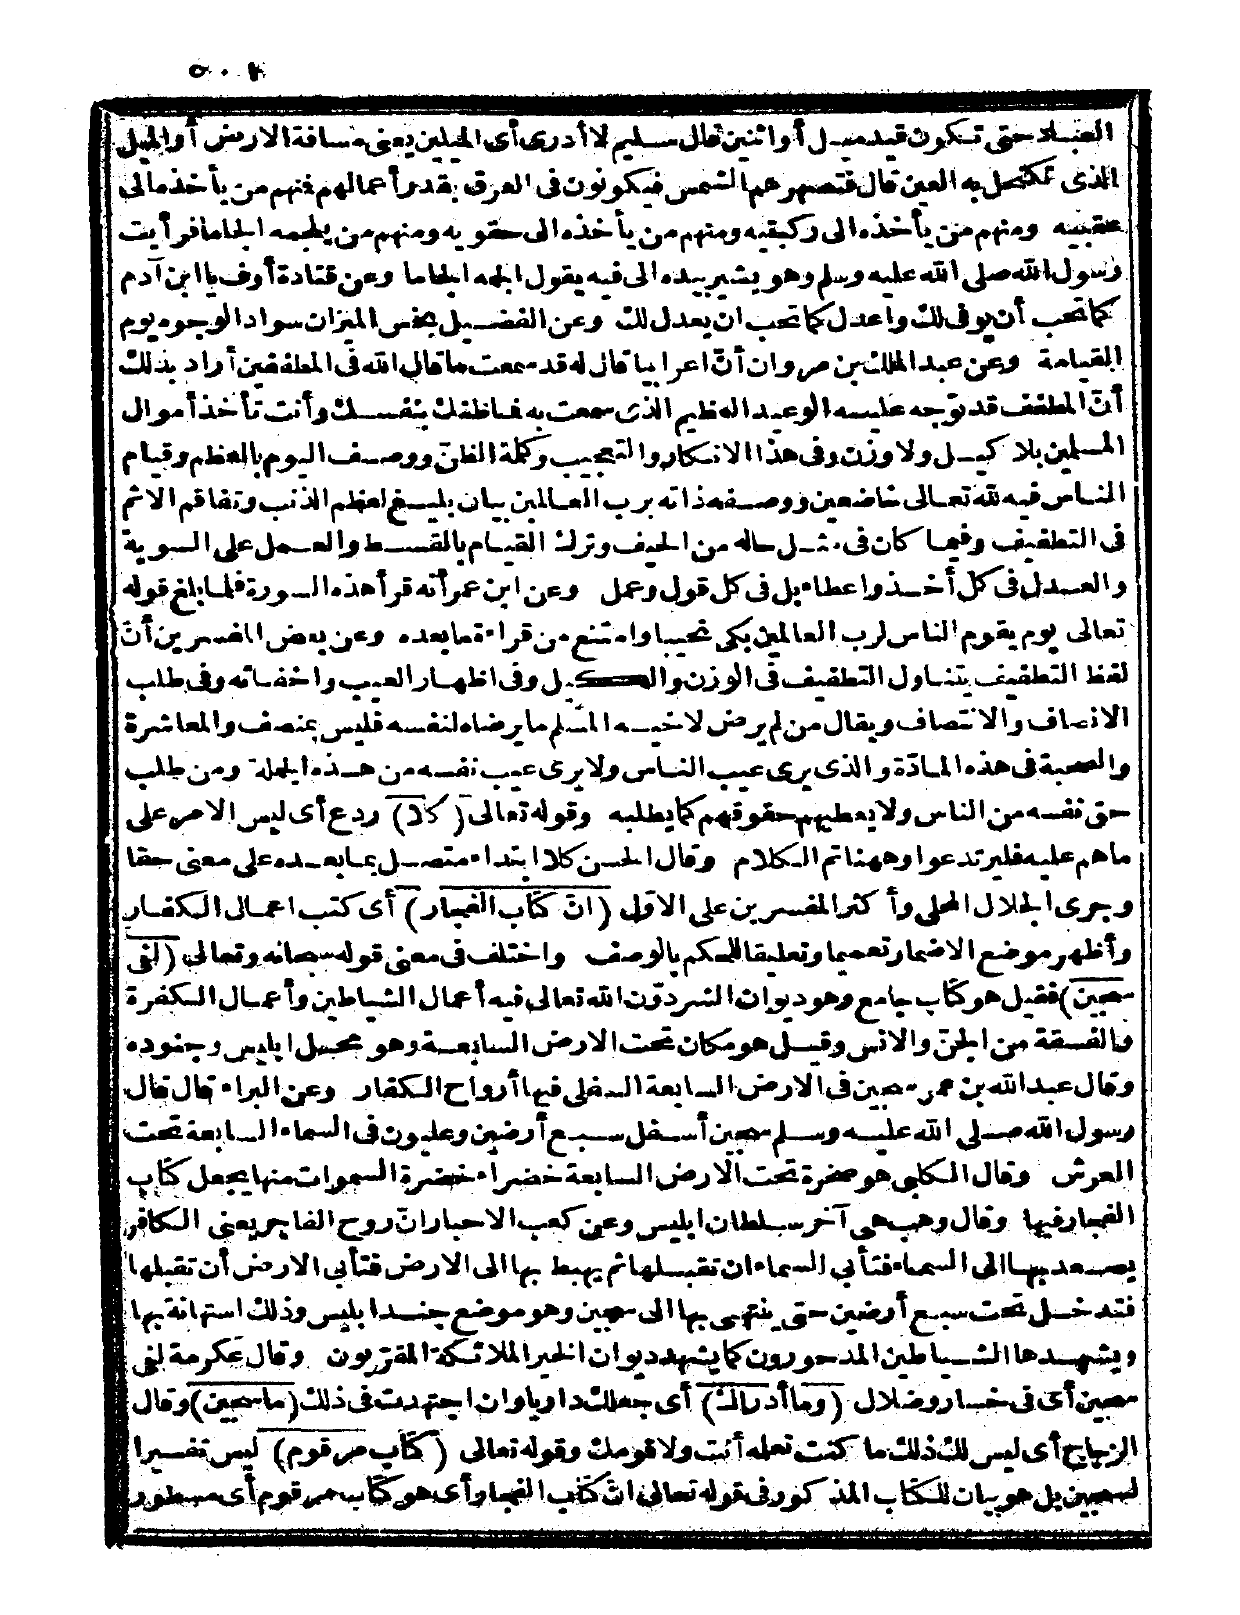 ٥٠٢
العباد حتى تكون قيد ميل أو اثنين قال سليم لا أدرى أى الميلين يعنى مسافة الارض أو الميل
الذى تكتحل به العين قال فتصهرهم الشمس فيكونون فى العرق بقدر أعمالهم فمنهم من يأخذه الى
عقبيه ومنهم من يأخذه الى ركبتيه ومنهم من يأخذه الى حقويه ومنهم من يلجمه الجاما فرأيت
رسول الله صلى الله عليه وسلم وهو يشير بيده الى فيه يقول الجمه الجاما وعن قتادة أوف يا ابن آدم
كما تحب أن يوفى لك واعدل كما تحب ان يعدل لك وعن الفضيل بخس الميزان سواد الوجوه يوم
القيامة وعن عبد الملك بن مروان أنّ اعرابيا قال له قد سمعت ما قال الله فى المطففين أراد بذلك
أنّ المطفف قد توّجه عليه الوعيد العظيم الذى سمعت به فاظنك بنفسك وأنت تأخذ أموال
المسلمين بلا كيل ولا وزن وفى هذا الانكار والتعجيب وكلمة الظنّ ووصف اليوم بالعظم وقيام
الناس فيه لله تعالى خاضعين ووصفه ذاته برب العالمين بيان بليغ لعظم الذنب وتفاقم الاثم
فى التطفيف وفيما كان فى مثل حاله من الحيف وترك القيام بالقسط والعمل على السوية
والعدل فى كل أخذ واعطاء بل فى كل قول وعمل وعن ابن عمر أنه قرأ هذه السورة فلما بلغ قوله
تعالى يوم يقوم الناس لرب العالمين بكى نحيبا وامتنع من قراءة ما بعده وعن بعض المفسرين أنّ
لفظ التطفيف يتناول التطفيف فى الوزن والكيل وفى اظهار العيب واخفائه وفى طلب
الانصاف والانتصاف ويقال من لم يرض لاخيه المسلم ما يرضاه لنفسه فليس بمنصف والمعاشرة
والصحبة فى هذه المادّة والذى يرى عيب الناس ولا يرى عيب نفسه من هذه الجملة ومن طلب
حق نفسه من الناس ولا يعطيهم حقوقهم كما يطلبه وقوله تعالى (كلا) ردع أى ليس الامر على
ماهم عليه فليرتدعوا وههنا تم الكلام وقال الحسن كلا ابتداء متصل بما بعده على معنى حقا
وجرى الجلال المحلى وأكثر المفسرين على الاوّل (انّ كتاب الفجار) أى كتب اعمال الكفار
وأظهر موضع الاضمار تعميما وتعليقا للحكم بالوصف واختلف فى معنى قوله سبحانه وتعالى (لفى
سجين) فقيل هو كتاب جامع وهو ديوان الشر دوّن الله تعالى فيه أعمال الشياطين وأعمال الكفرة
والفسقة من الجنّ والانس وقيل هو مكان تحت الارض السابعة وهو محل ابليس وجنوده
وقال عبد الله بن عمر سجين فى الارض السابعة السفلى فيها أرواح الكفار وعن البراء قال قال
رسول الله صلى الله عليه وسلم سجين أسفل سبع أرضين وعليون فى السماء السابعة تحت
العرش وقال الكلبى هو صخرة تحت الارض السابعة خضراء خضرة السموات منها يجعل كتاب
الفجار فيها وقال وهب هى آخر سلطان ابليس وعن كعب الاحبار انّ روح الفاجر يعنى الكافر
يصعد بها الى السماء فتأبى السماء ان تقبلها ثم يهبط بها الى الارض فتأبى الارض أن تقبلها
فتدخل تحت سبع أرضين حتى ينتهى بها الى سجين وهو موضع جند ابليس وذلك استهانة بها
ويشهدها الشياطين المدحورون كما يشهد ديوان الخير الملائكة المقرّبون وقال عكرمة لفى
سجين أى فى خسار وضلال (وما أدراك) أى جعلك داريا وان اجتهدت فى ذلك (ما سجين) وقال
الزجاج أى ليس لك ذلك ما كنت تعلمه أنت ولا قومك وقوله تعالى (كتاب مرقوم) ليس تفسيرا
لسجين بل هو بيان للكتاب المذكور فى قوله تعالى انّ كتاب الفجار أى هو كتاب مرقوم أى مسطور